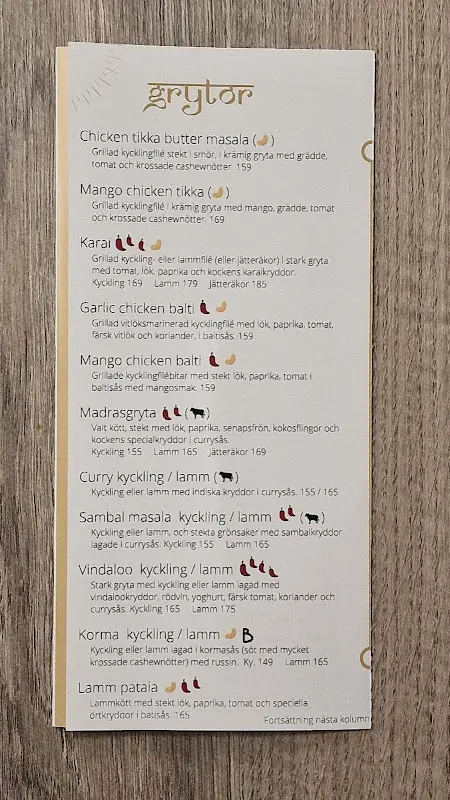 grytor
Chicken tikka butter masala ( )
Grillad kycklingfilé stekt i smör, i krämig gryta med grädde,
tomat och krossade cashewnötter. 159
Mango chicken tikka ( )
Grillad kycklingfilé i krämig gryta med mango, grädde, tomat
och krossade cashewnötter. 169
Karai
Grillad kyckling- eller lammfilé (eller jätteräkor) i stark gryta
med tomat, lök, paprika och kockens karaikryddor.
Kyckling 169 Lamm 179 Jätteräkor 185
Garlic chicken balti
Grillad vitlöksmarinerad kycklingfilé med lök, paprika, tomat,
färsk vitlök och koriander, i baltisås. 159
Mango chicken balti
Grillade kycklingfilébitar med stekt lök, paprika, tomat i
baltisås med mangosmak. 159
Madrasgryta ( )
Valt kött, stekt med lök, paprika, senapsfrön, kokosflingor och
kockens specialkryddor i currysås.
Kyckling 155 Lamm 165 Jätteräkor 169
Curry kyckling / lamm ( )
Kyckling eller lamm med indiska kryddor i currysås. 155 / 165
Sambal masala kyckling / lamm ( )
Kyckling eller lamm, och stekta grönsaker med sambalkryddor
lagade i currysås. Kyckling 155 Lamm 165
Vindaloo kyckling / lamm
Stark gryta med kyckling eller lamm lagad med
vindalookryddor, rödvin, yoghurt, färsk tomat, koriander och
currysås. Kyckling 165 Lamm 175
Korma kyckling / lamm B
Kyckling eller lamm lagad i kormasås (söt med mycket
krossade cashewnötter) med russin. Ky. 149 Lamm 165
Lamm pataia
Lammkött med stekt lök, paprika, tomat och speciella
örtkryddor i batisås. 165
Fortsättning nästa kolumn